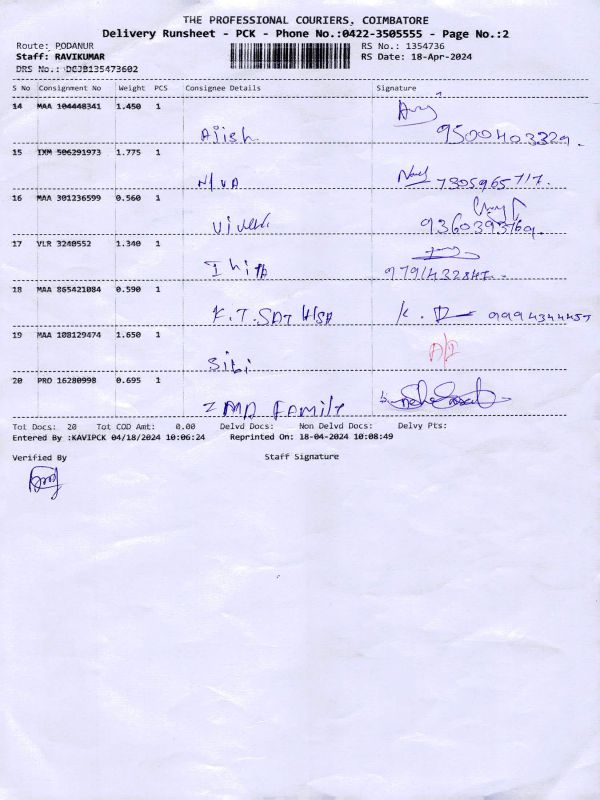 THE PROFESSIONAL COURIERS, COIMBATORE
Delivery Runsheet - PCK - Phone No.:0422-3505555 - Page No.:2
Route: PODANUR RS No.: 1354736
Staff: RAVIKUMAR RS Date: 18-Apr-2024
DRS No.: DCJB135473602
S No Consignment No Weight PCS Consignee Details Signature
14 MAA 104448341 1.450 1
Ajish 9500403329.
15 IXM 506291973 1.775 1
7305965717.
16 MAA 301236599 0.560 1
Vivek 9360393769.
17 VLR 3240552 1.340 1
18 MAA 865421084 0.590 1
K.T. 9994344457
19 MAA 108129474 1.650 1
Sibi
20 PRO 16280998 0.695 1
FAMILY
Tot Docs: 20 Tot COD Amt: 0.00 Delvd Docs: Non Delvd Docs: Delvy Pts:
Entered By :KAVIPCK 04/18/2024 10:06:24 Reprinted On: 18-04-2024 10:08:49
Verified By Staff Signature